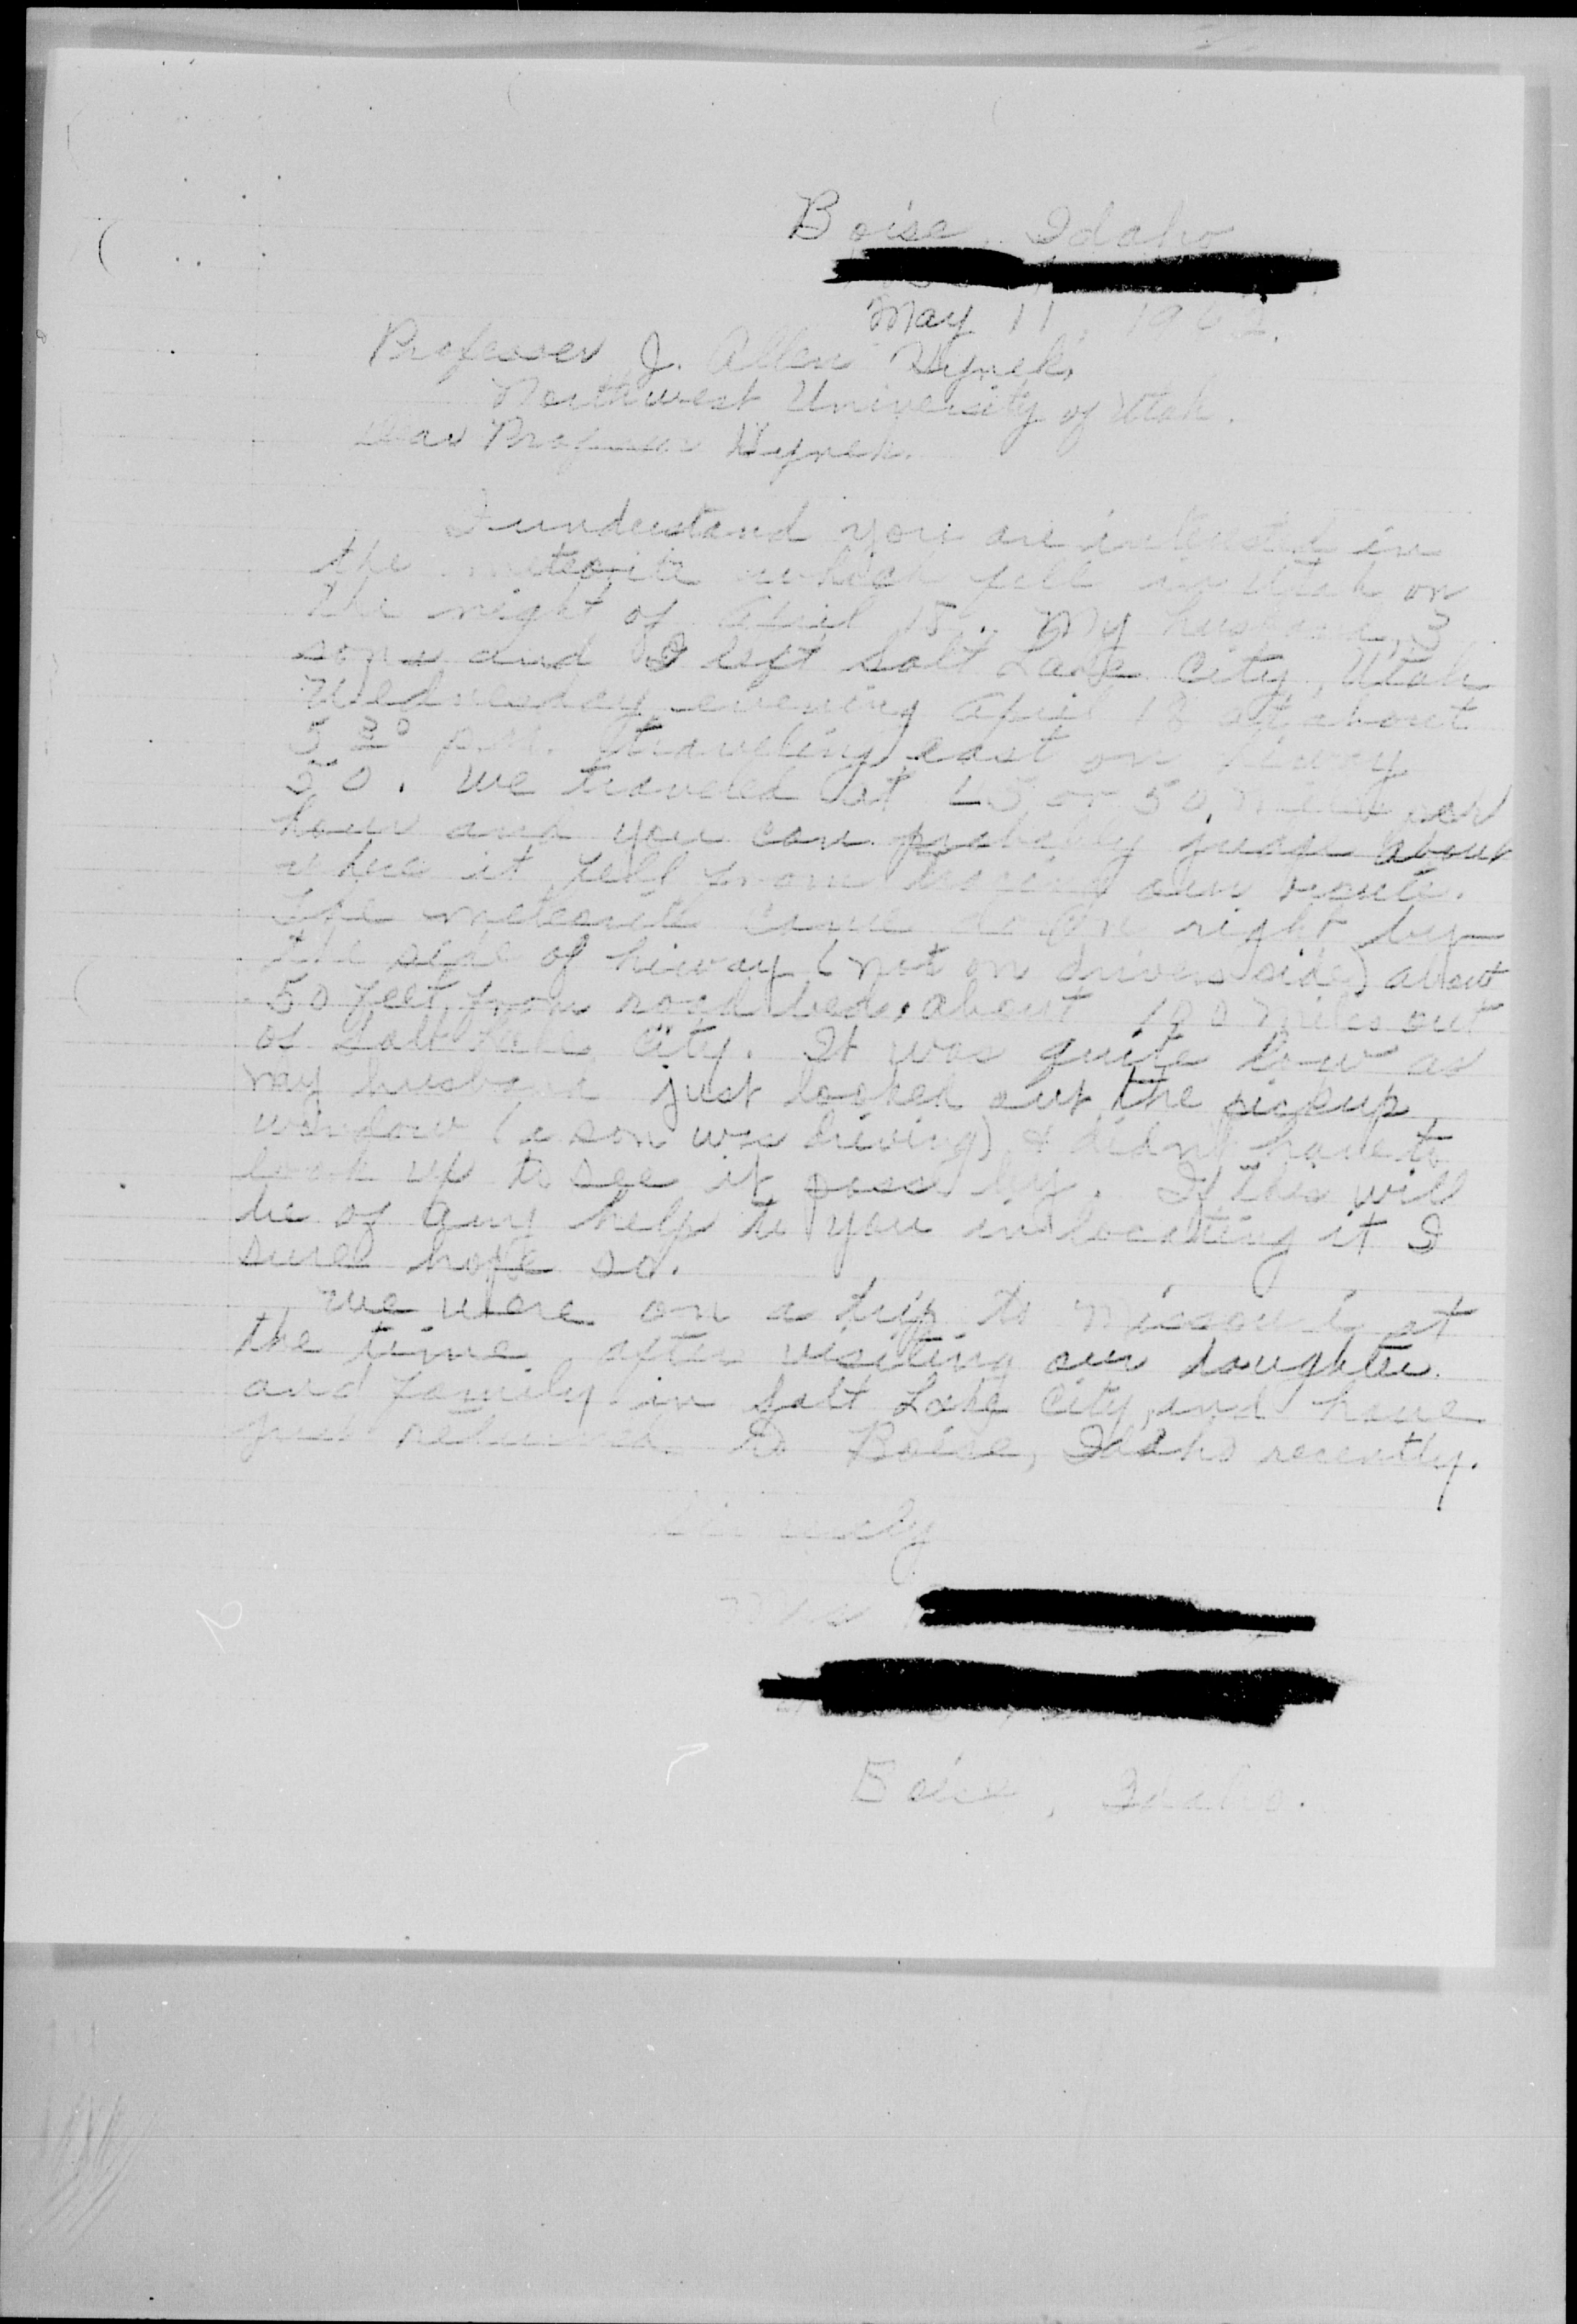 Boise, Idaho
May 11, 1962.
Professor J. Allen Hynek,
Northwest University of Utah.
Dear Professor Hynek.
I understand you are intersted in
the meteorite which fell in Utah on
the night of April 18. My husband, 3
sons and I left Salt Lake City, Utah
Wednesday evening April 18 at about
5 30 p.m. traveling east on hiway
50. We traveled at 45 or 50 miles per
hour and you can probably judge about
where it fell from tracing our route.
The meteorite came down right by
the side of hiway (not on drivers side) about
50 feet from road bed, about 100 miles out
of Salt Lake City. It was quite low as
my husband just looked out the pickup
window (a son was driving) & didn't have to
look up to see it pass by. If this will
be of any help to you in locating it I
sure hope so.
We were on a trip to Missouri at
the time after visiting our daughter
and family in Salt Lake City, and have
just returned to Boise, Idaho recently.
Sincerely
Mrs
Boise, Idaho.